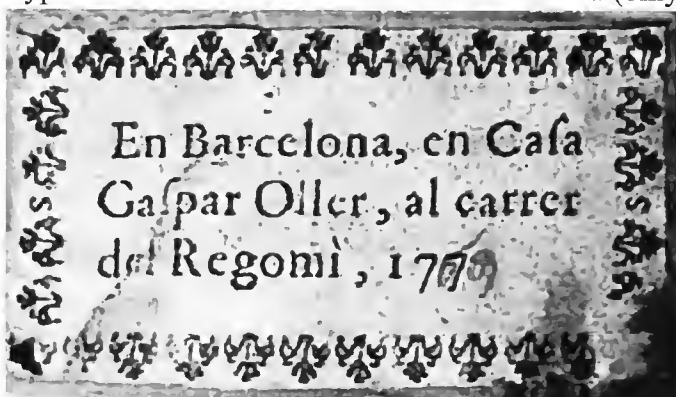 En Barcelona, en Caſa
Gaſpar Oller, al carrer
del Regomì,